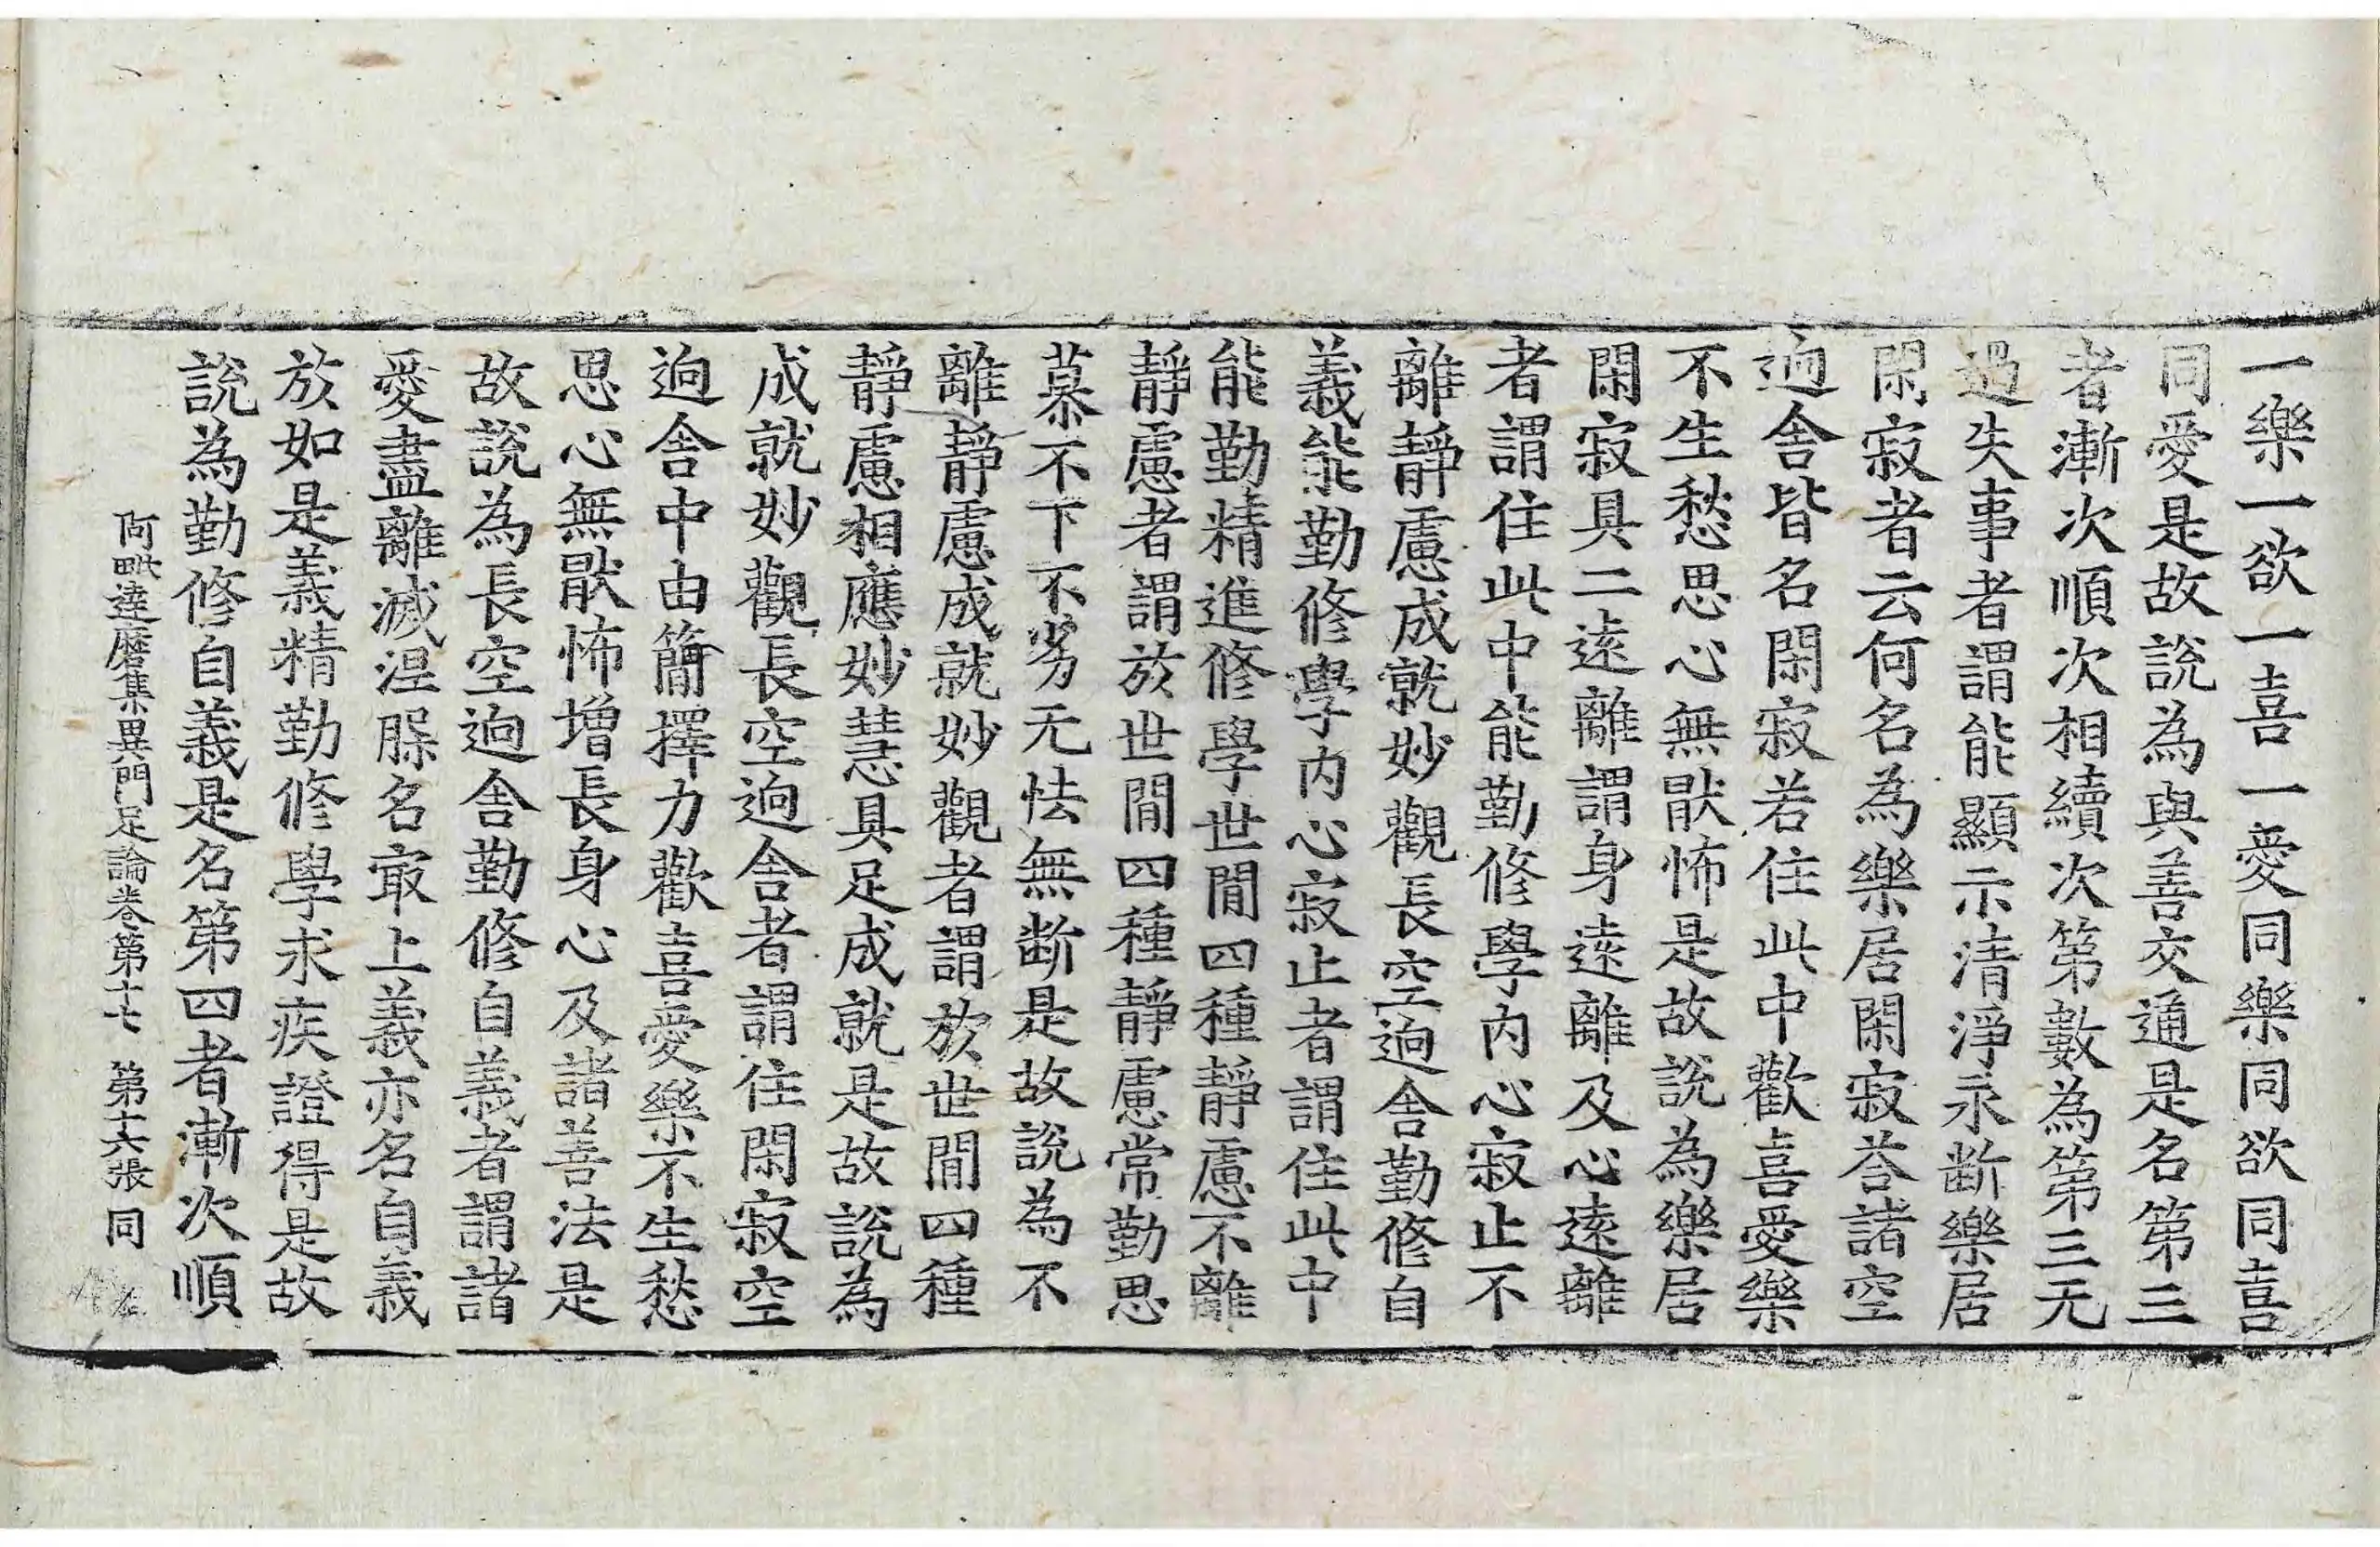 一樂一欲一喜一愛同樂同欲同喜
同愛是故說為與善交通是名第三
者漸次順次相續次第數為第三无
過失事者謂能顯示清淨永斷樂居
閑寂者云何名為樂居閑寂荅諸空
逈舍皆名閑寂若住此中歡喜愛樂
不生愁思心無猒怖是故說為樂居
閑寂具二遠離謂身遠離及心遠離
者謂住此中能勤修學內心寂止不
離靜慮成就妙觀長空逈舍勤修自
義能勤修學內心寂止者謂住此中
能勤精進修學世間四種靜慮不離
靜慮者謂於世間四種靜慮常勤思
慕不下不劣无怯無斷是故說為不
離靜慮成就妙觀者謂於世間四種
靜慮相應妙慧具足成就是故說為
成就妙觀長空逈舍者謂住閑寂空
逈舍中由簡擇力歡喜愛樂不生愁
思心無猒怖增長身心及諸善法是
故說為長空逈舍勤修自義者謂諸
愛盡離滅涅槃名冣上義亦名自義
於如是義精勤修學求疾證得是故
說為勤修自義是名第四者漸次順
阿毗達磨集異門足論卷第十七 第十六張 同